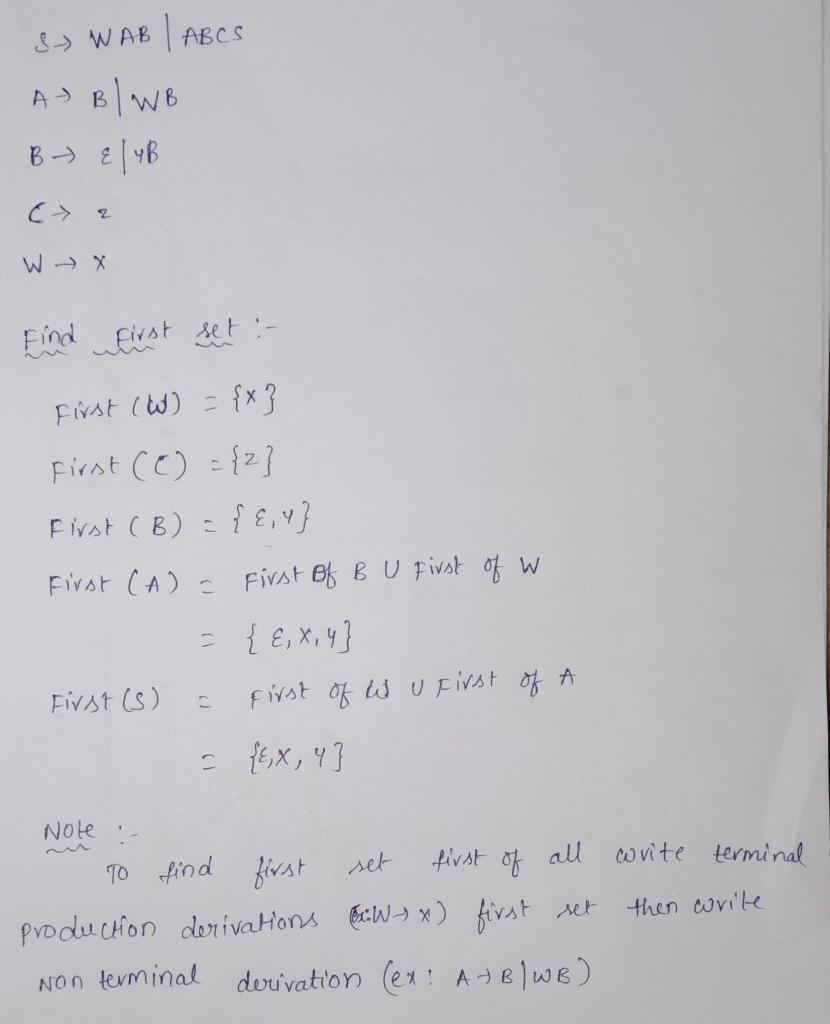 S → WAB | ABCS
A → B | WB
B → ε | yB
C → z
W → x
Find First set :-
First (W) = {x}
First (C) = {z}
First (B) = {ε, y}
First (A) = First Of B U First of W
= {ε, x, y}
First (S) = First of W U First of A
= {ε, x, y}
Note :-
To find first set first of all write terminal
production derivations (Ex: W → x) first set then write
Non terminal derivation (ex: A → B | WB)